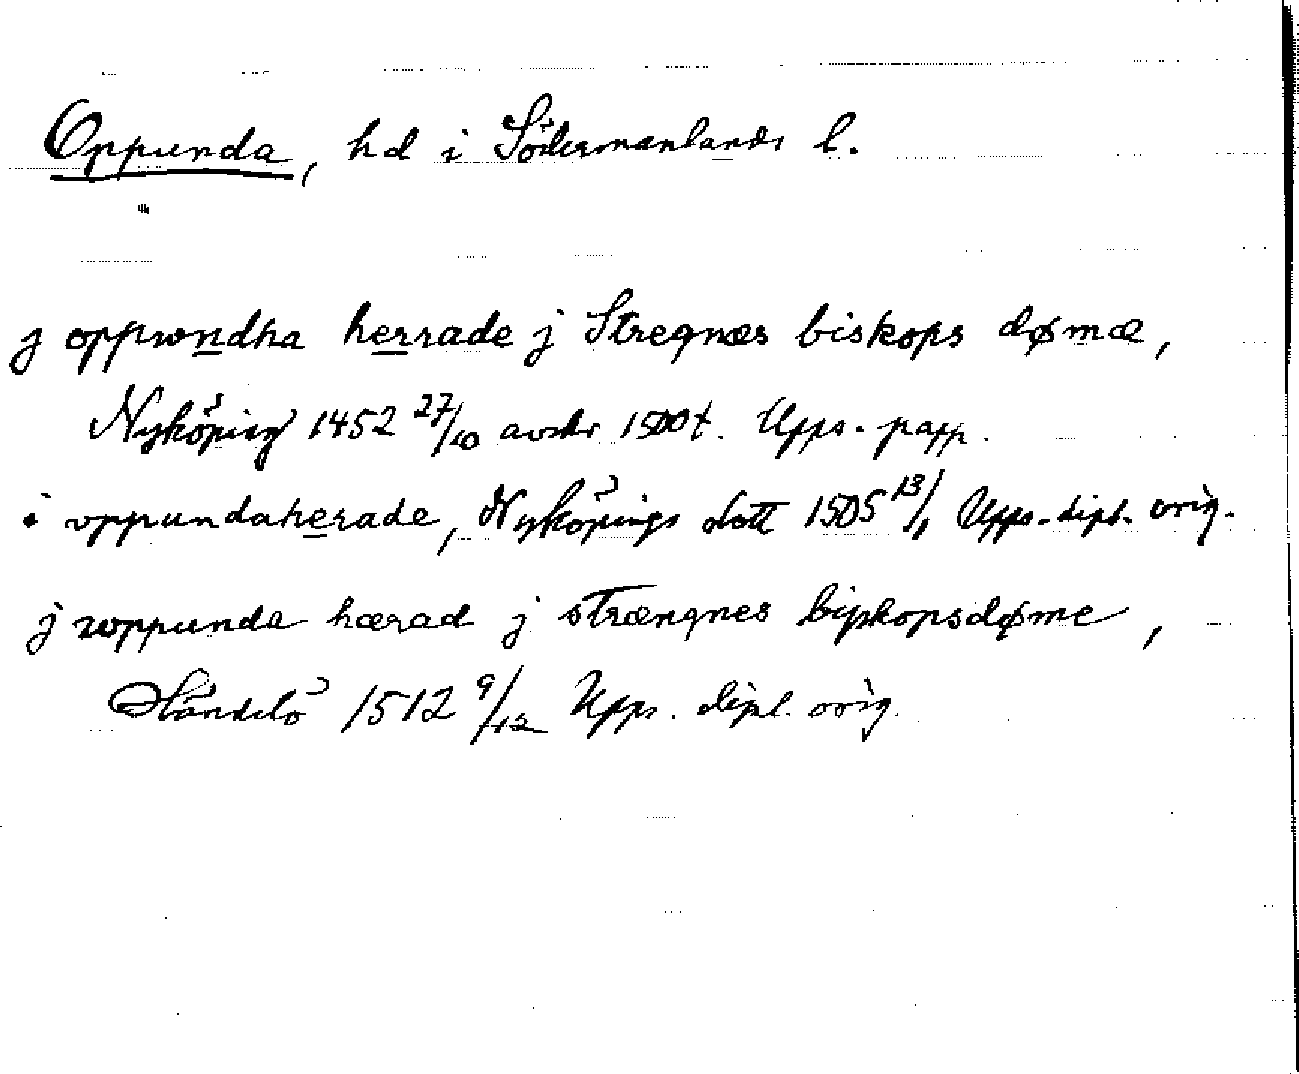 Oppunda, hd i Södermanlands l.
j oppwndha herrade j Stregnæs biskops dømæ,
Nyköping 1452 27/10 avskr 1500t. Upps. papp.
i vppundaherade, Nyköpings slott 1505 13/1 Upps. dipl. orig.
j woppunda hærad j strængnes biskopsdøme,
Händelö 1512 9/12 Upps. dipl. orig.